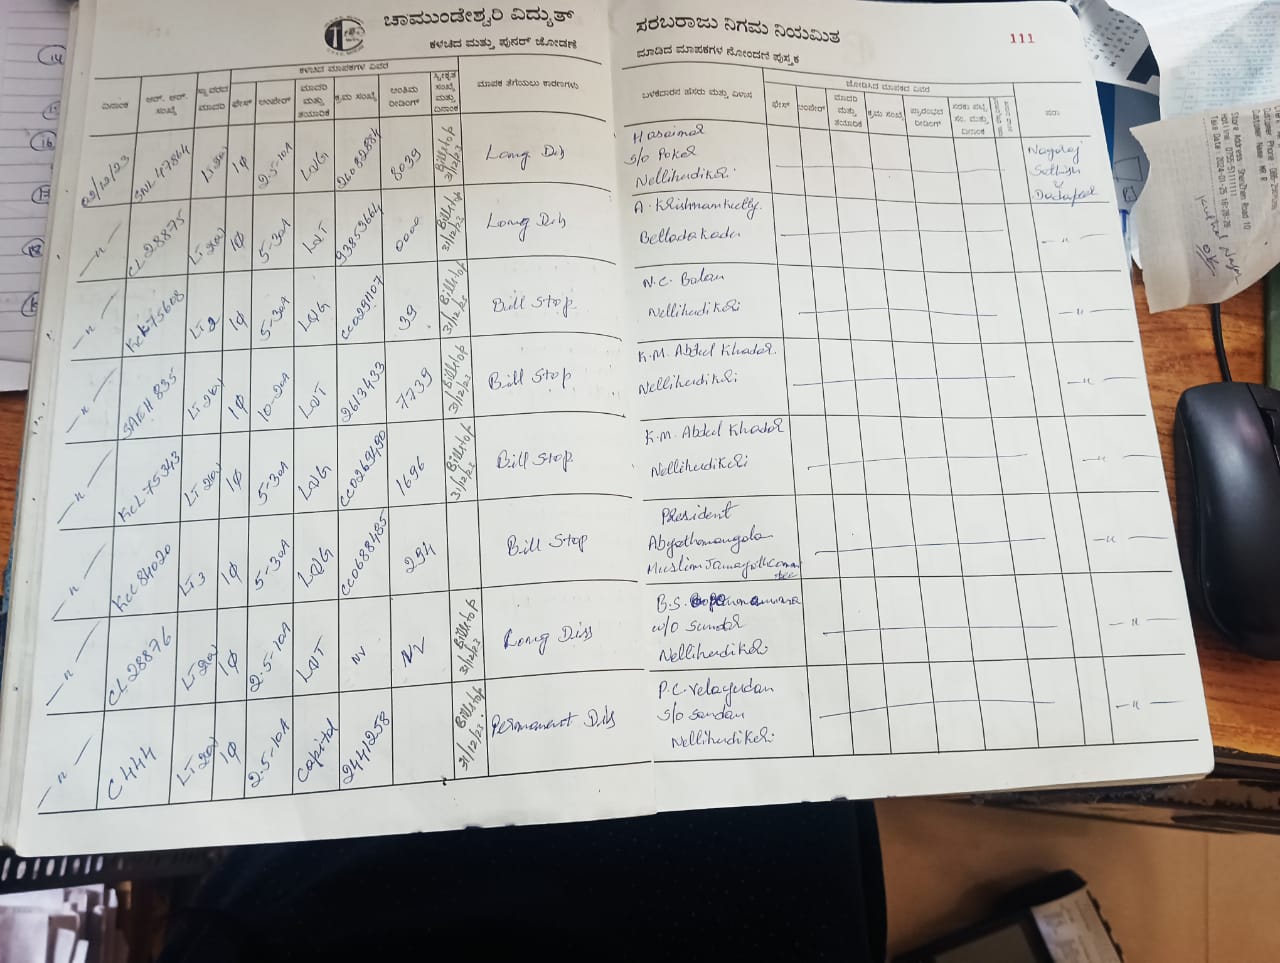 ಚಾಮುಂಡೇಶ್ವರಿ ವಿದ್ಯುತ್ ಸರಬರಾಜು ನಿಗಮ ನಿಯಮಿತ
111
ಕಳಚಿದ ಮತ್ತು ಪುನರ್ ಜೋಡಣೆ ಮಾಡಿದ ಮಾಪಕಗಳ ನೋಂದಣಿ ಪುಸ್ತಕ
ಕಳಚಿದ ಮಾಪಕಗಳ ವಿವರ
ಜೋಡಿಸಿದ ಮಾಪಕದ ವಿವರ
ದಿನಾಂಕ
ಆರ್. ಆರ್. ಸಂಖ್ಯೆ
ಸ್ಥಾವರದ ಮಾದರಿ
ಫೇಸ್
ಅಂಪೇರ್
ಮಾದರಿ ಮತ್ತು ತಯಾರಿಕೆ
ಕ್ರಮ ಸಂಖ್ಯೆ
ಅಂತಿಮ ರೀಡಿಂಗ್
ಸ್ವೀಕೃತ ಸಂಖ್ಯೆ ಮತ್ತು ದಿನಾಂಕ
ಮಾಪಕ ತೆಗೆಯಲು ಕಾರಣಗಳು
ಬಳಕೆದಾರನ ಹೆಸರು ಮತ್ತು ವಿಳಾಸ
ಫೇಸ್
ಅಂಪೇರ್
ಮಾದರಿ ಮತ್ತು ತಯಾರಿಕೆ
ಕ್ರಮ ಸಂಖ್ಯೆ
ಪ್ರಾರಂಭದ ರೀಡಿಂಗ್
ಷರಾ
02/12/23 SNL 47864 1Φ 2.5-10A L&G 26082884 8039 Billstop 31/12/23 Long Dis
s/o Poker
Nellihudikeri
Nagaraj
Sathish
&
Dadapeer
-"- CL 28875 1Φ 5-30A L&T 93853664 0000 Billstop 31/12/23 Long Dis
A. Krishnamhetty.
Bettadakadu -"-
-"- KCL 75608 LT-2 1Φ 5-30A L&G CC0291107 39 Billstop 31/12/23 Bill Stop
N.C. Balan
Nellihudikeri -"-
-"- 1Φ 10-20A L&T 2613433 7739 Billstop 31/12/23 Bill Stop
K.M. Abdul Khadar.
Nellihudikeri -"-
-"- KCL 75343 1Φ 5-30A L&G CC0269490 1696 Billstop 31/12/23 Bill Stop
K.M. Abdul Khadar
Nellihudikeri -"-
-"- KCL 84020 LT3 1Φ 5-30A L&G CC0688485 294 Bill Stop
President
Abyathmangala
Muslim Jamayath Comm
tee -"-
-"- CL 28876 1Φ 2.5-10A L&T NV NV Billstop 31/12/23 Long Diss
B.S.
w/o Sundar
Nellihudikeri -"-
-"- C 444 1Φ 2.5-10A Capital 2441258 Billstop 31/12/23. Permanent Dis
P.C. Velayudan
s/o Sandan
Nellihudikeri -"-